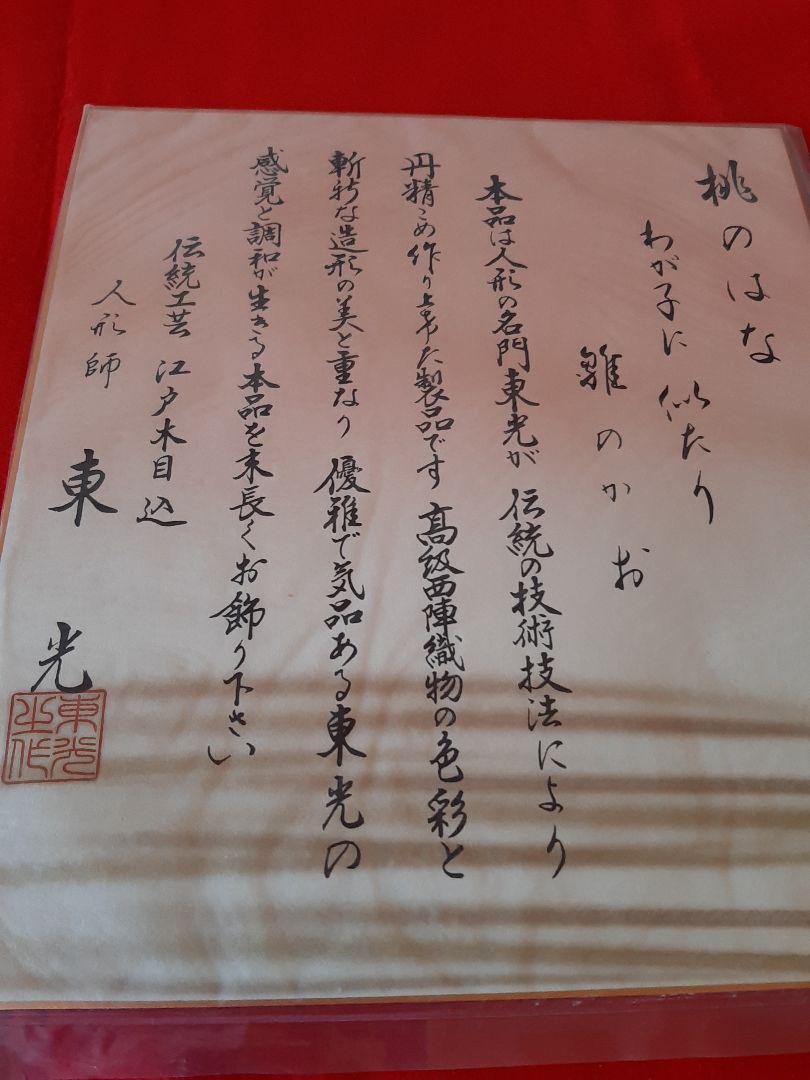 桃のはな
わが子に似たり
雛のかお
本品は人形の名門東光が 伝統の技術技法により
丹精こめ作り上げた製品です 高級西陣織物の色彩と
斬新な造形の美と重なり 優雅で気品ある東光の
感覚と調和が生きる本品を末長くお飾り下さい
伝統工芸 江戸木目込
人形師
東光
東光之作